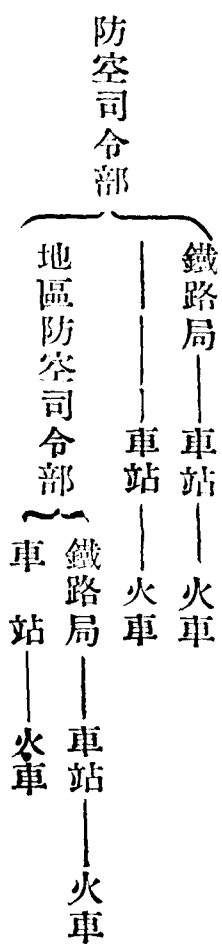 防空司令部
鐵路局——車站——火車
————車站——火車
地區防空司令部
鐵路局——車站——火車
車站——火車